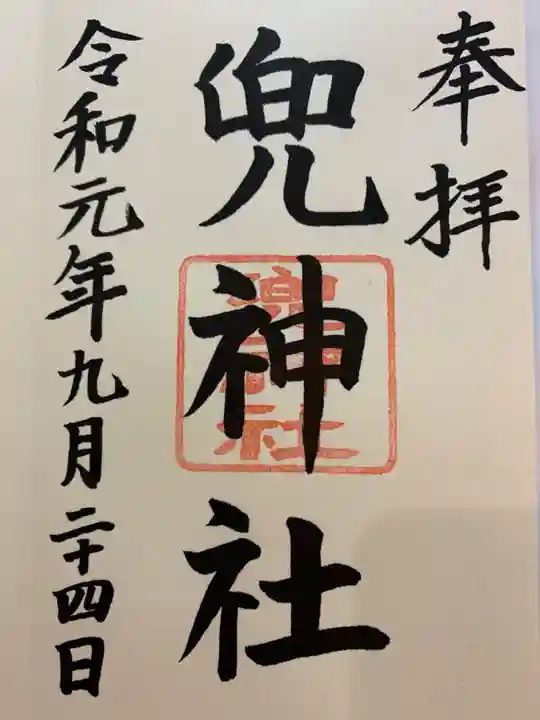 奉拝
兜神社
兜神社
令和元年九月二十四日